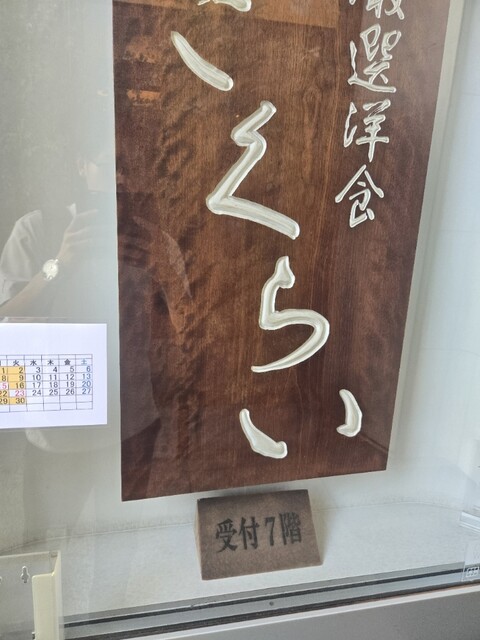 厳選洋食
さくらい
火 水 木 金 土
1 2 3 4 5 6
8 9 10 11 12 13
16 17 18 19 20
22 23 24 25 26 27
29 30
受付7階